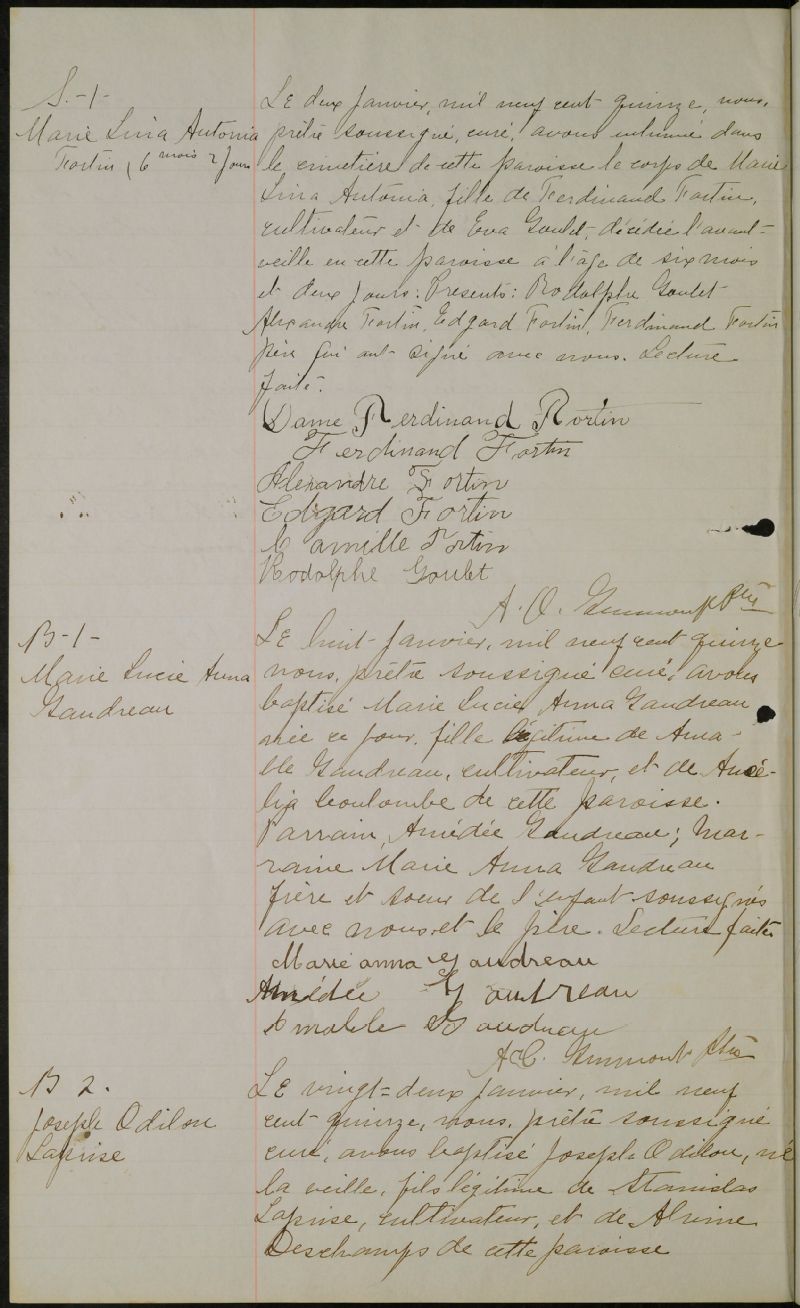 S.-1-
Marie Lina Antonia
Fortin, 6 mois 2 jours
Le deux janvier, mil neuf cent quinze, nous,
prêtre soussigné, curé, avons inhumé dans
le cimetière de cette paroisse le corps de Marie
Lina Antonia, fille de Ferdinand Fortin,
cultivateur et de Eva Goulet, décédée l'avant-
veille en cette paroisse à l'âge de six mois
et deux jours. Présents: Rodolphe Goulet
Alexandre Fortin, Edgard Fortin, Ferdinand Fortin
père qui ont signé avec nous. Lecture
faite.
Dame Ferdinand Fortin
Ferdinand Fortin
Alexandre Fortin
Edgard Fortin
Camille Fortin
Rodolphe Goulet
A. O. Ptre
B-1-
Marie Lucie Anna
Gaudreau
Le huit janvier, mil neuf cent quinze
nous, prêtre soussigné curé, avons
baptisé Marie Lucie Anna Gaudreau
née ce jour, fille légitime de Ama-
ble Gaudreau, cultivateur, et de Amé-
lia Coulombe de cette paroisse.
Parrain, Amédée Gaudreau; mar-
raine Marie Anna Gaudreau
frère et soeur de l'enfant soussignés
avec nous et le père. Lecture faite
Marie anna Gaudreau
Amédée Gautreau
Amable Gaudreau
Ptre
B 2.
Joseph Odilon
Laprise
Le vingt-deux janvier, mil neuf
cent quinze, nous, prêtre soussigné
curé, avons baptisé Joseph Odilon, né
la veille, fils légitime de Stanislas
Laprise, cultivateur, et de Alvine
Deschamps de cette paroisse